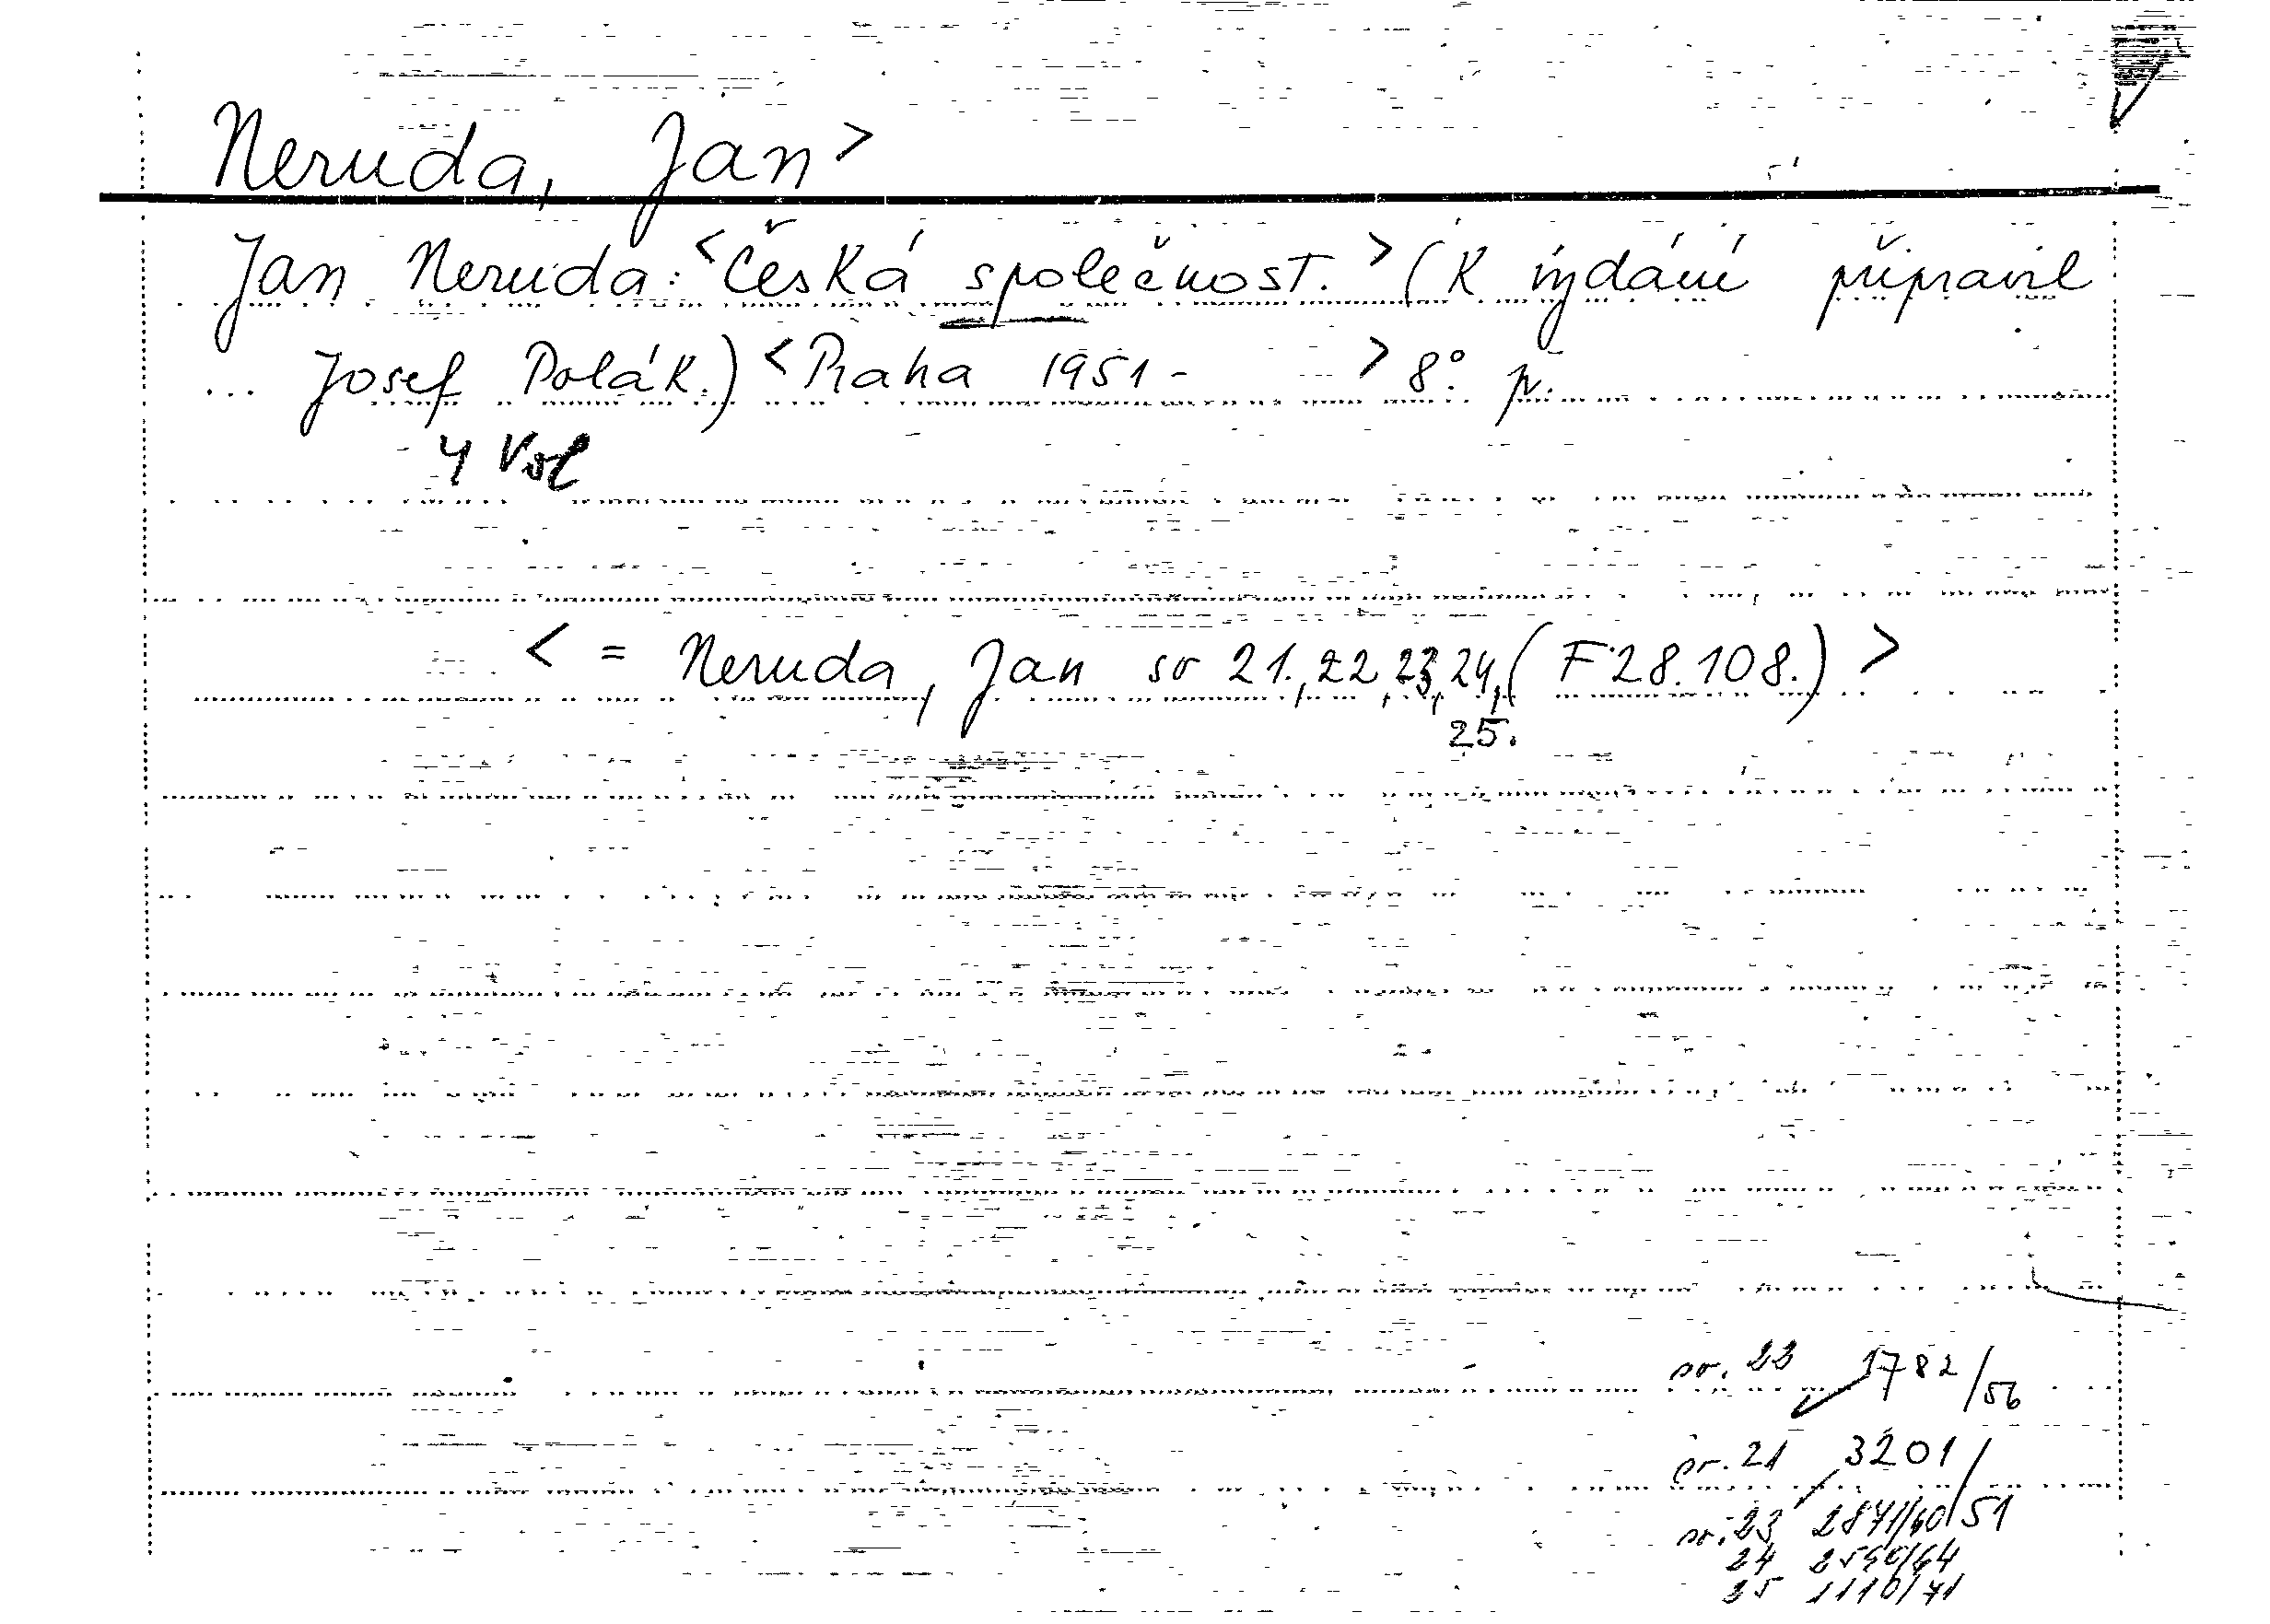 Neruda, Jan>
Jan Neruda: <Česká společnost.> (K vydání připravil
... Josef Polák.) <Praha 1951- > 8°. p.
4 Vol
< = Neruda, Jan sv 21., 22, 23, 24, (F 28.108.) >
25.
sv. 22 1782/56
sv. 21 3201/51
sv. 23 2871/60
24
25 1110/71